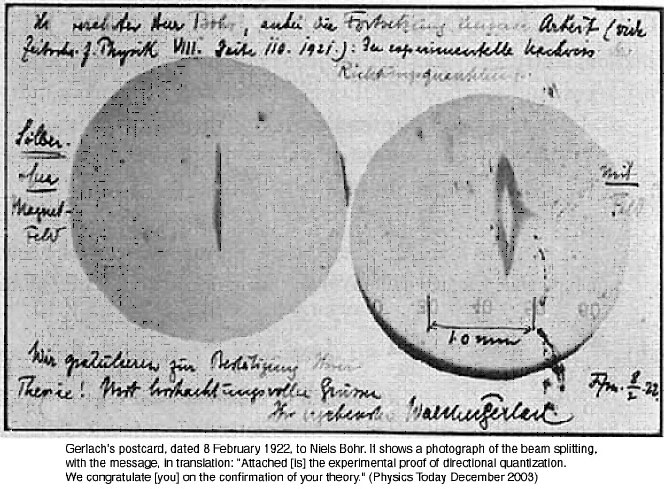 verehrter Herr Bohr, anbei die Fortsetzung unserer Arbeit (vide
Zeitschr. f. Physik VIII. Seite 110. 1921.): Der experimentelle Nachweis
Richtungsquantelung.
Silber
ohne
Magnet-
Feld
mit
Feld
1.0 mm
Wir gratulieren zur Bestätigung Ihrer
Theorie! Mit hochachtungsvollen Grüssen
Ihr ergebenster Walther Gerlach
Ffm. 8/2 22
Gerlach's postcard, dated 8 February 1922, to Niels Bohr. It shows a photograph of the beam splitting,
with the message, in translation: "Attached [is] the experimental proof of directional quantization.
We congratulate [you] on the confirmation of your theory." (Physics Today December 2003)